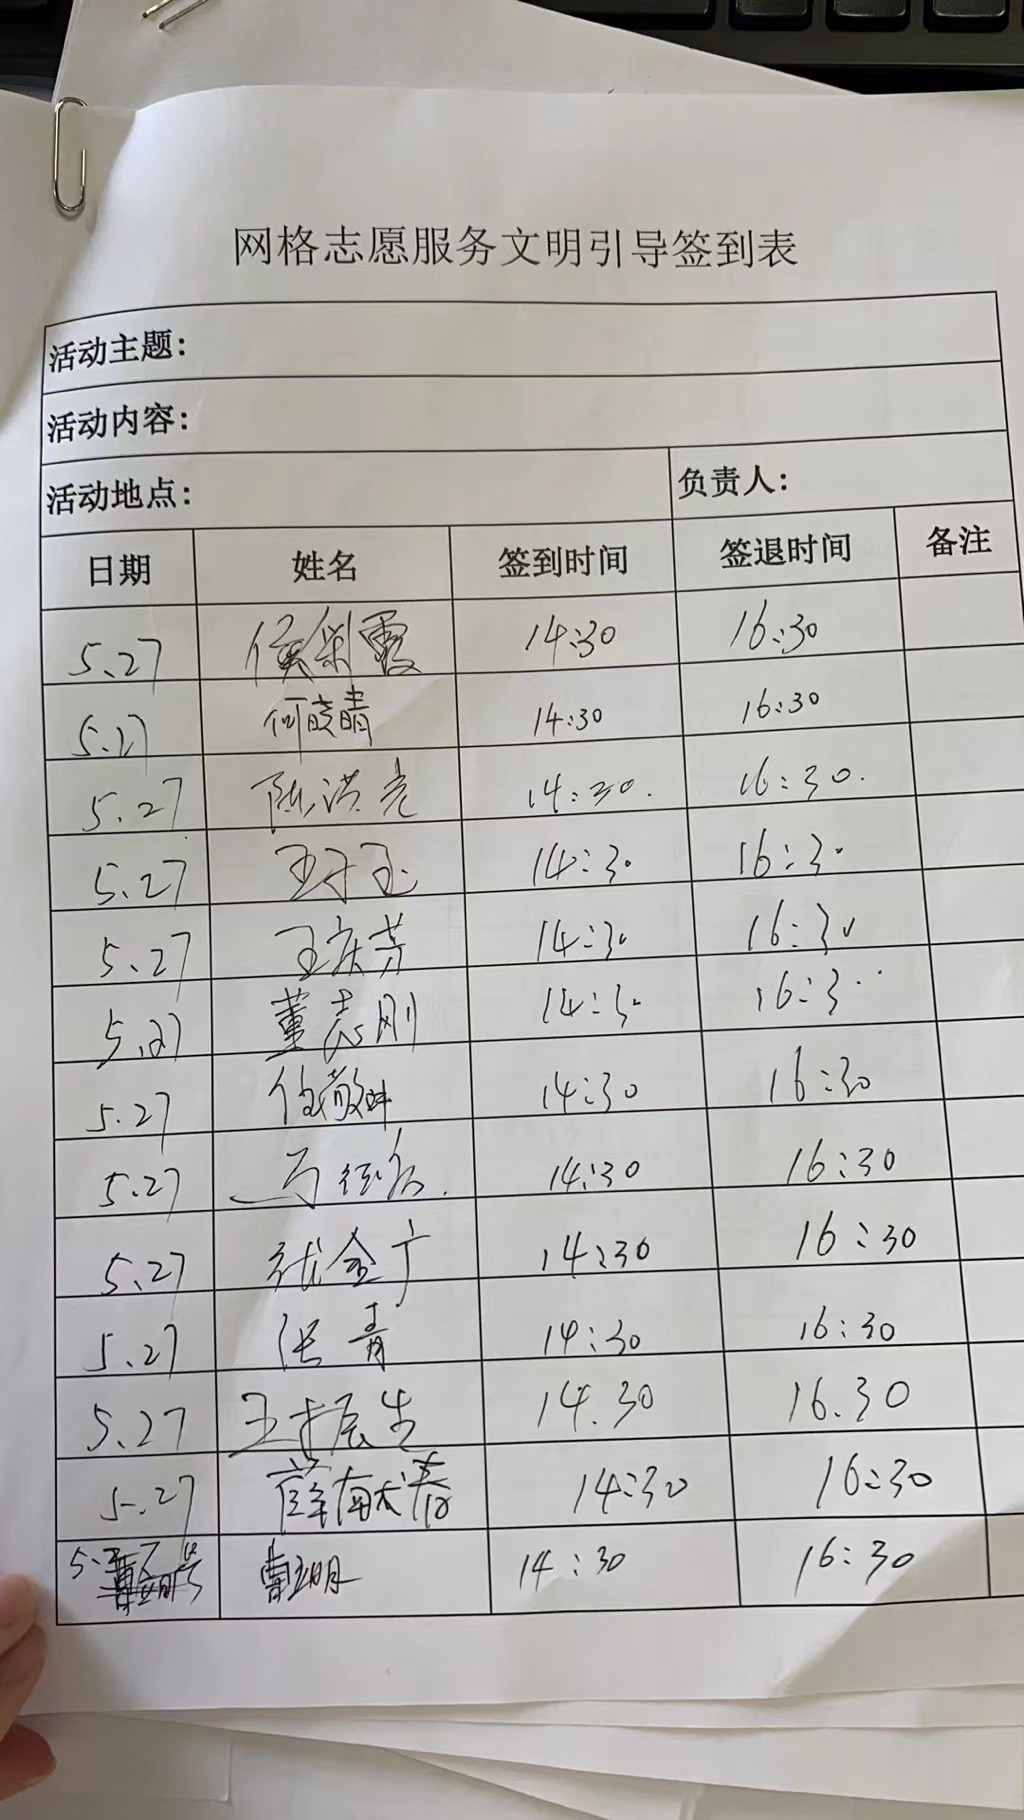 网格志愿服务文明引导签到表
活动主题：
活动内容：
活动地点： 负责人：
日期 姓名 签到时间 签退时间 备注
5.27 侯彩霞 14:30 16:30
5.27 何晓晴 14:30 16:30
5.27 陈洪亮 14:30. 16:30.
5.27 王于玉 14:30 16:30
5.27 王庆芳 14:30 16:30
5.27 董志刚 14:30 16:30
5.27 14:30 16:30
5.27 14:30 16:30
5.27 张金广 14:30 16:30
5.27 张青 14:30 16:30
5.27 王振生 14.30 16.30
5.27 薛春 14:30 16:30
5.27 曹玉明 14:30 16:30